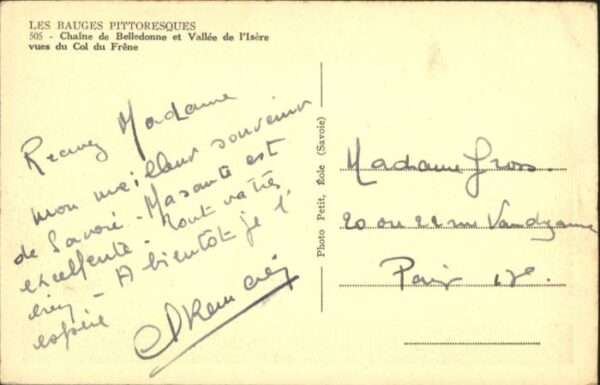 LES BAUGES PITTORESQUES
505 - Chaîne de Belledonne et Vallée de l'Isère
vues du Col du Frêne
Recevez Madame
mon meilleur souvenir
de Savoie. Ma santé est
excellente. Tout va très
bien - A bientôt je l'
espère
Photo Petit, Role (Savoie)
Madame Gross.
20 ou 22 rue Vandzanne
Paris 17e